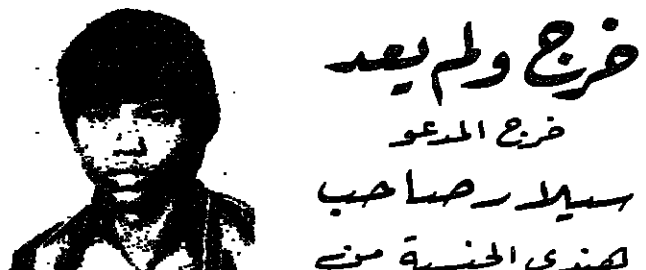 خرج ولم يعد
خرج المدعو
سيلار صاحب
هندي الجنسية من